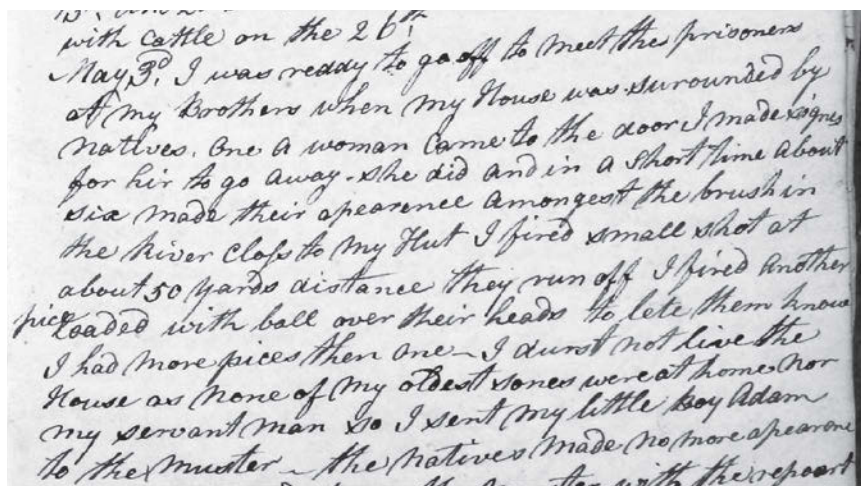 with cattle on the 26th
May 3d, I was ready to go off to meet the prisoners
at my Brothers when my House was surounded by
natives. One a woman Came to the door I made signes
for hir to go away - she did and in a short time about
six made their apearence amongest the brush in
the River Closs to my Hut I fired small shot at
about 50 yards distance they run off I fired another
pice Loaded with ball over their heads to lete them know
I had more pices then one - I durst not live the
House as none of my oldest sones were at home nor
my servant man so I sent my little Boy Adam
to the muster - the natives made no more apearence
with the repoart